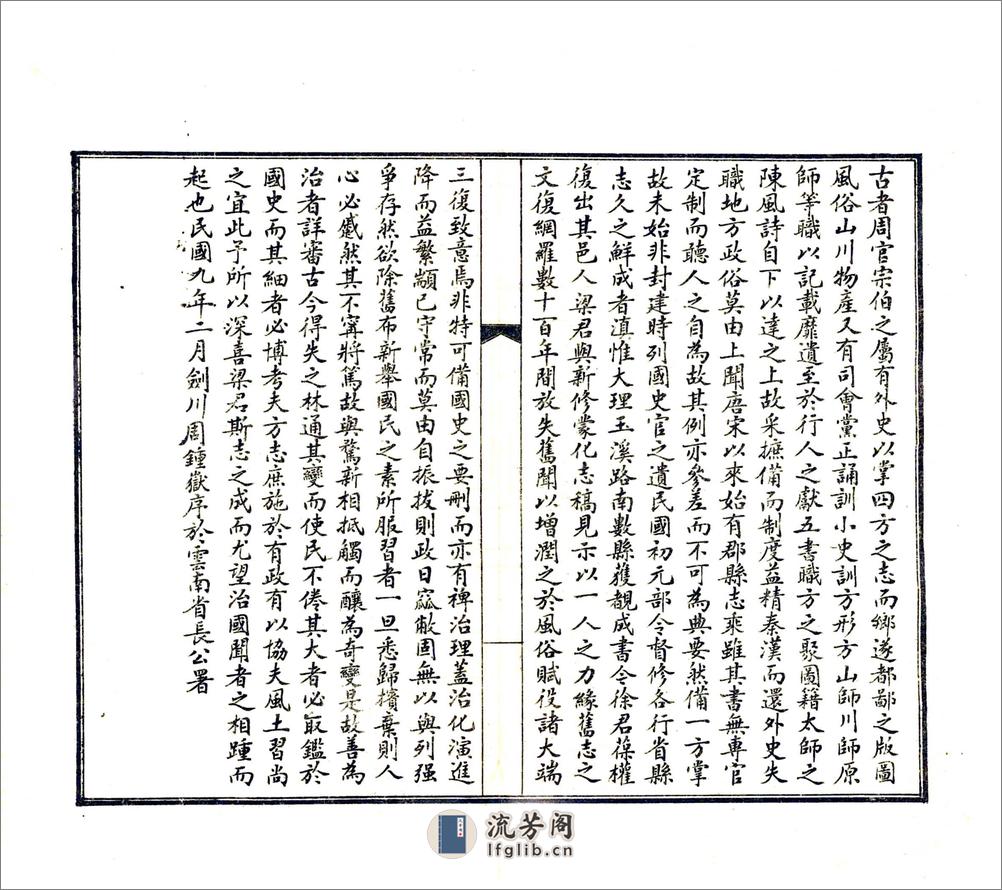 古者周官宗伯之屬有外史以掌四方之志而鄉遂都鄙之版圖
風俗山川物產又有司會黨正誦訓小史訓方形方山師川師原
師等職以記載靡遺至於行人之獻五書職方之聚圖籍太師之
陳風詩自下以達之上故采摭備而制度益精秦漢而還外史失
職地方政俗莫由上聞唐宋以來始有郡縣志乘雖其書無專官
定制而聽人之自為故其例亦參差而不可為典要然備一方掌
故未始非封建時列國史官之遺民國初元部令督修各行省縣
志久之鮮成者滇惟大理玉溪路南數縣獲覩成書今徐君葆權
復出其邑人梁君與新修蒙化志稿見示以一人之力緣舊志之
文復網羅數十百年間放失舊聞以增潤之於風俗賦役諸大端
三復致意焉非特可備國史之要刪而亦有裨治理蓋治化演進
降而益繁顓己守常而莫由自振拔則政日窳敝固無以與列强
爭存然欲除舊布新舉國民之素所服習者一旦悉歸擯棄則人
心必慼然其不寧將篤故與驚新相抵觸而釀為奇變是故善為
治者詳審古今得失之林通其變而使民不倦其大者必取鑑於
國史而其細者必博考夫方志庶施於有政有以協夫風土習尚
之宜此予所以深喜梁君斯志之成而尤望治國聞者之相踵而
起也民國九年二月劍川周鍾嶽序於雲南省長公署
流芳阁
lfglib.cn